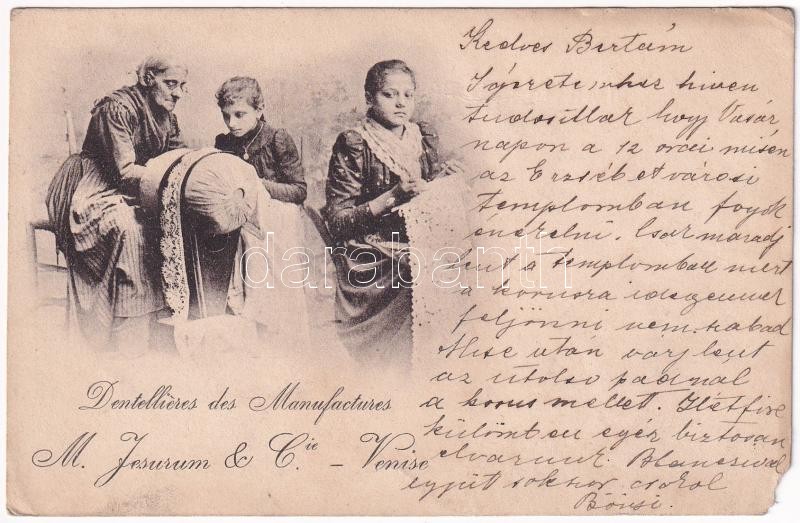 Kedves Bertám
Igéretemhez hiven
tudosillak hogy Vasár
napon a 12 orai misén
az Erzsébetvárosi
templomban fogok
énekelni. Csak maradj
lent a templomban mert
a korusra idegennek
feljönni nem szabad
Mise után várj lent
az utolso padnál
a korus mellet. Hétfőre
külömben egész biztosan
elvárunk. Blancsival
együt sokszor csokol
Börsi.
darabanth
Dentellières des Manufactures
M. Jesurum & Cie - Venise